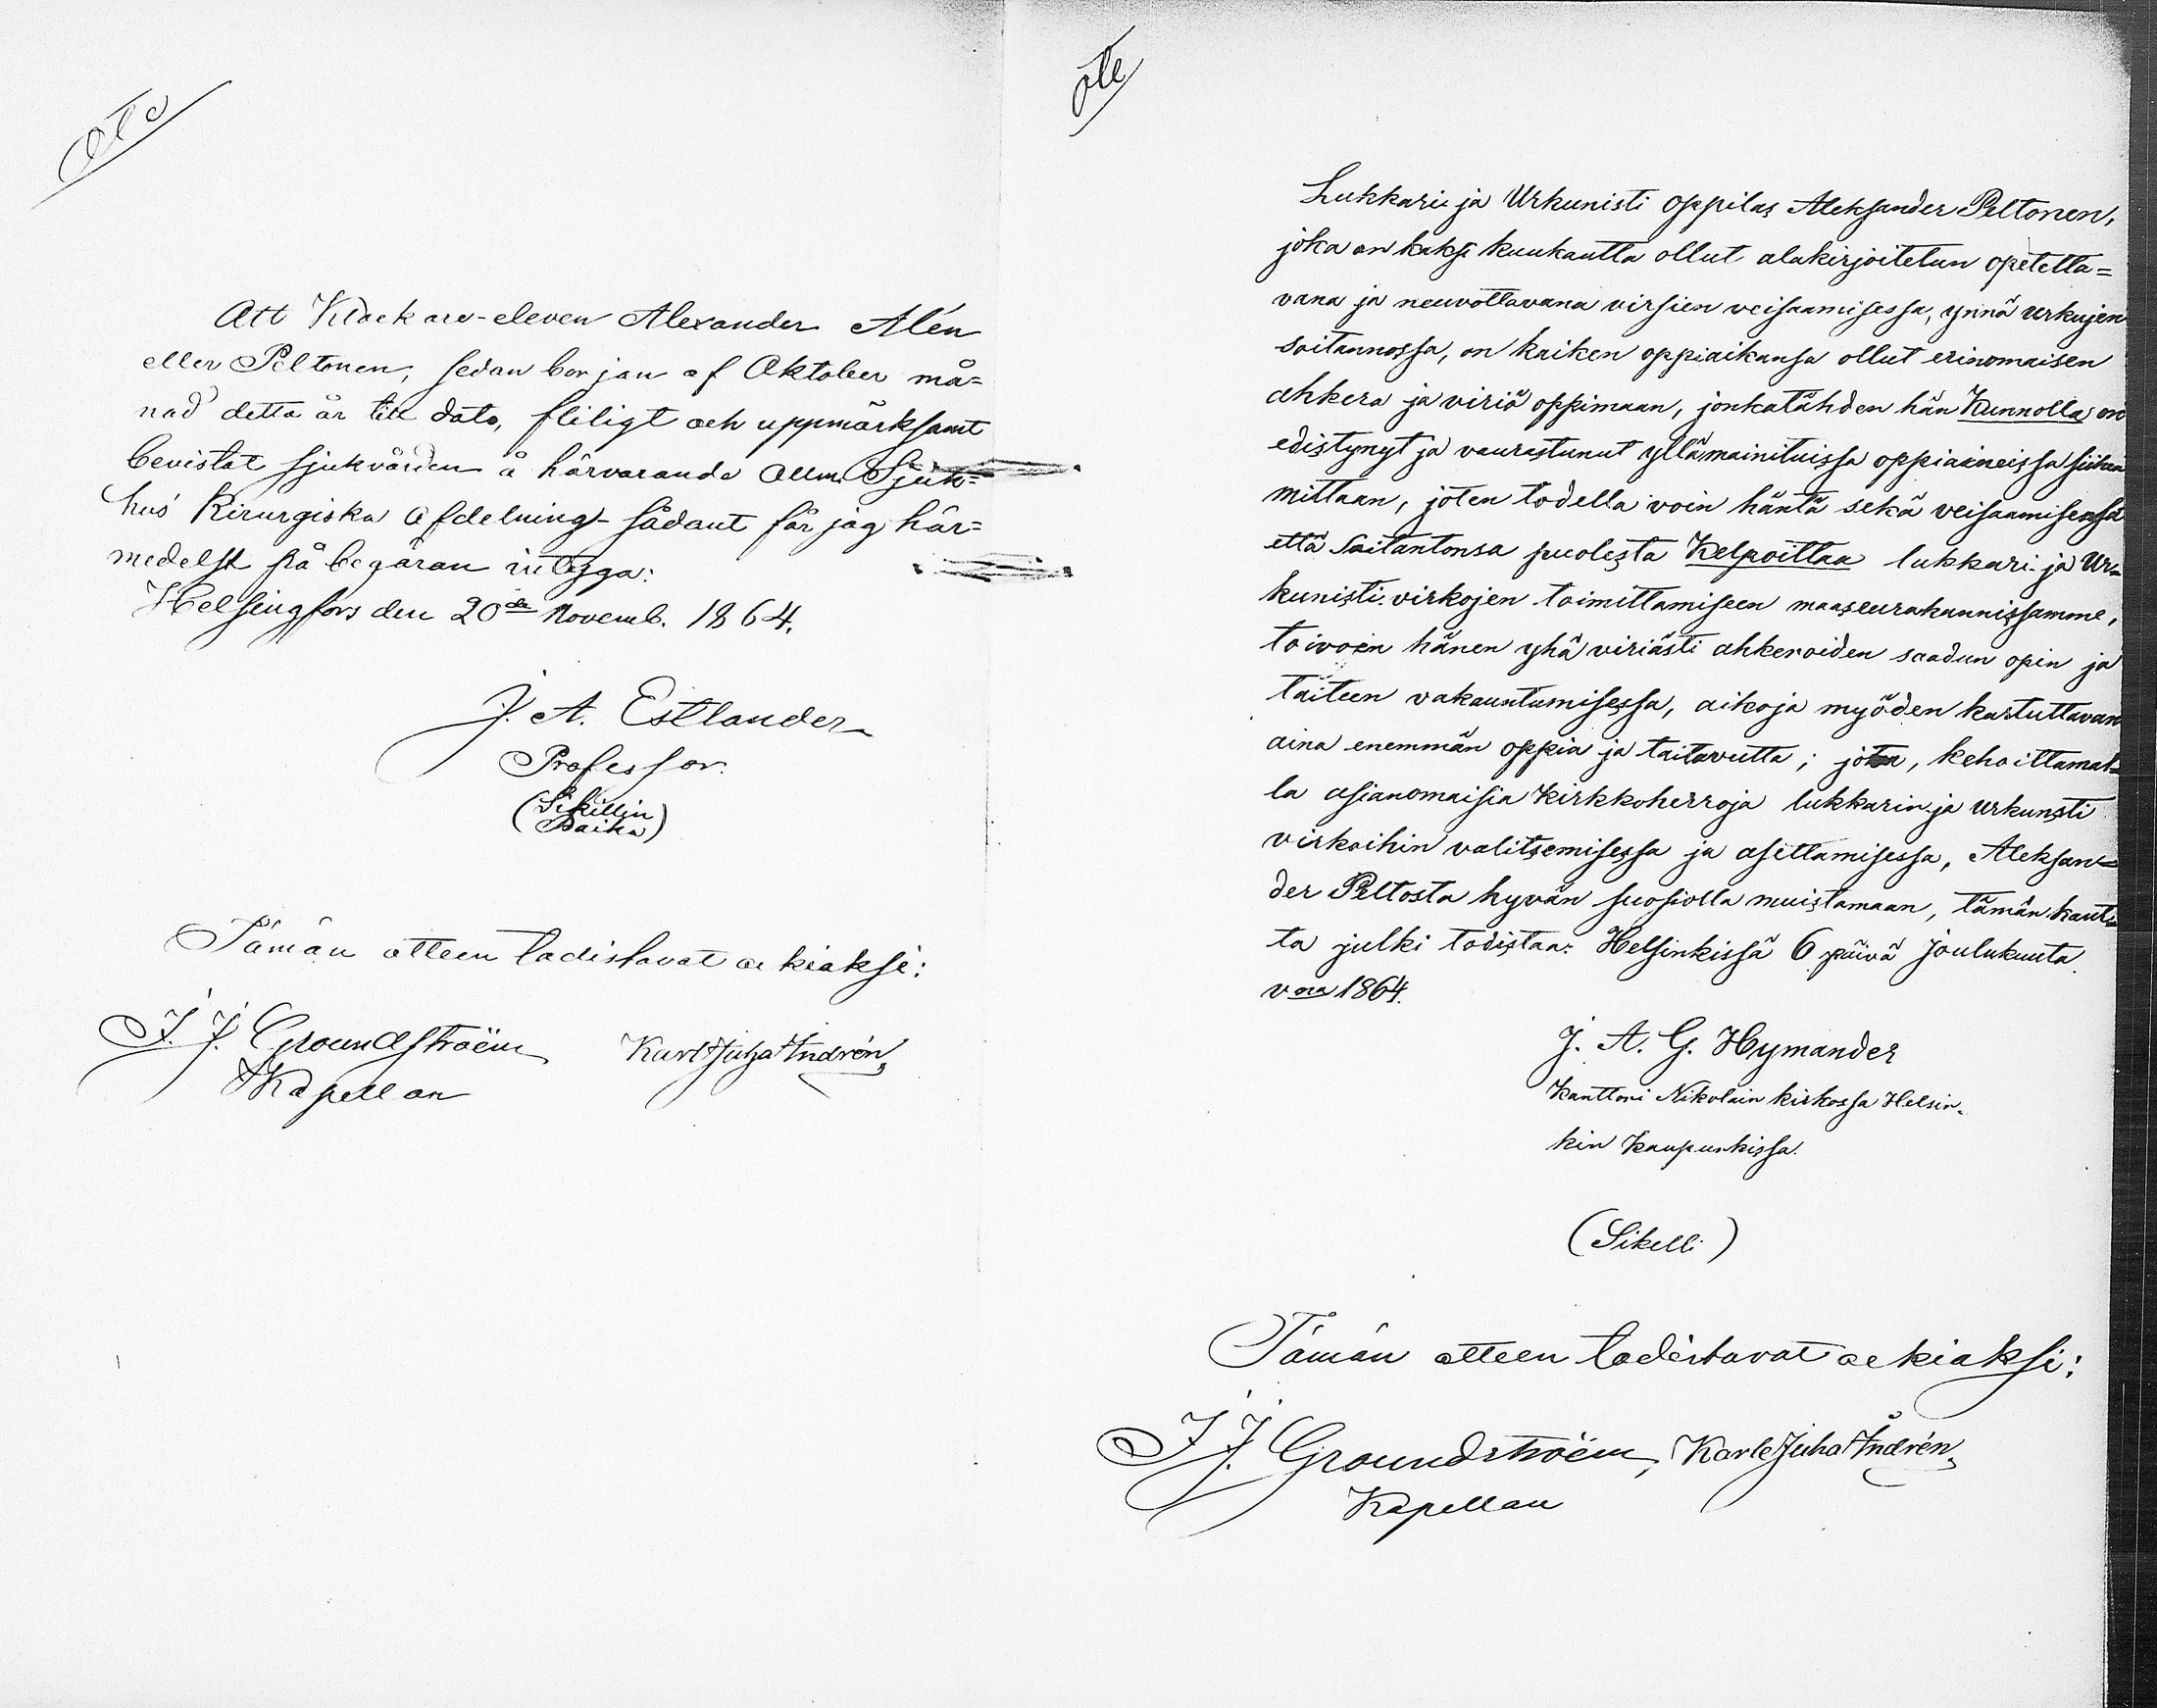 Ote
Att Klockare-eleven Alexander Alén
eller Peltonen, sedan början af Oktober må=
nad detta år till dato, flitigt och uppmärksamt
bevistat sjukvården å härvarande Allm. Sjuk=
hus Kirurgiska Afdelning- sådant får jag här=
medelst på begäran intyga:
Helsingfors den 20de Novemb. 1864.
J. A. Estlander
Professor.
(Sikillin
Paika)
Tämän otteen todistavat oikiaksi:
J. J. Groundstroëm Karl Juha Andrén
Kapellan
Ote
Lukkari ja Urkunisti oppilas Aleksander Peltonen,
joka on kaksi kuukautta ollut alakirjoitetun opetetta=
vana ja neuvottavana virsien veisaamisessa, ynnä urkujen
soitannossa, on kaiken oppiaikansa ollut erinomaisen
ahkera ja viriä oppimaan, jonkatähden hän Kunnolla on
edistynyt ja vaurastunut yllämainituissa oppiaineissa siihen
mittaan, joten todella voin häntä sekä veisaamisensa
että Soitantonsa puolesta Kelpoittaa lukkari- ja Ur=
kunisti-virkojen toimittamiseen maaseurakunnissamme,
toivoin hänen yhä viriästi ahkeroiden saadun opin ja
taiteen vakauntumisessa, aikoja myöden kartuttavan
aina enemmän oppia ja taitavutta; jota, kehoittamal=
la asianomaisia Kirkkoherroja lukkarin- ja urkunsti
virkoihin valitsemisessa ja asettamisessa, Aleksan=
der Peltosta hyvän suosiolla muistamaan, tämän kaut=
ta julki todistaa: Helsinkissä 6 päivä Joulukuuta
vna 1864.
J. A. G. Hymander
Kanttori Nikolain kirkossa Helsin-
kin Kaupunkissa.
(Sikelli)
Tämän otteen todistavat oikiaksi:
J. J. Groundstroëm, Karle Juha Andrén
Kapellan